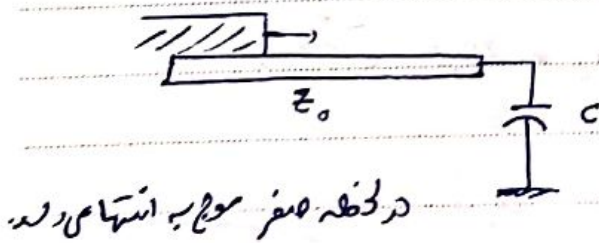 Z₀
C
در لحظه صفر موج به انتها می‌رسد.